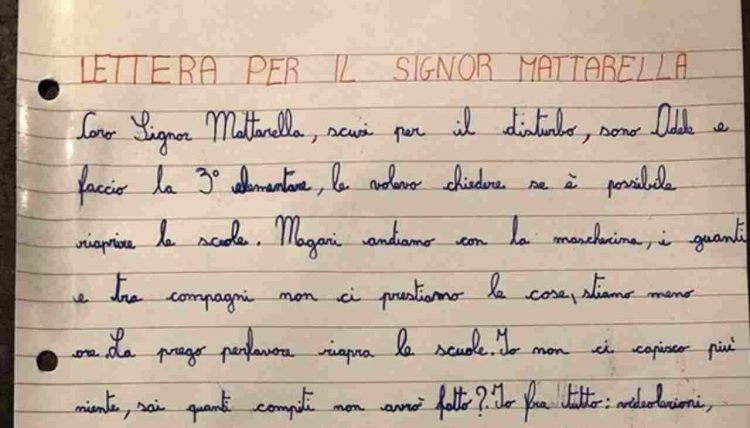 LETTERA PER IL SIGNOR MATTARELLA
Caro Signor Mattarella, scusi per il disturbo, sono Adele e
faccio la 3° elementare, le volevo chiedere se è possibile
riaprire le scuole. Magari andiamo con la mascherina, i guanti
e tra compagni non ci prestiamo le cose, stiamo meno
ore. La prego perfavore riapra le scuole. Io non ci capisco più
niente, sai quanti compiti non avrò fatto? Io fra tutto: videolezioni,